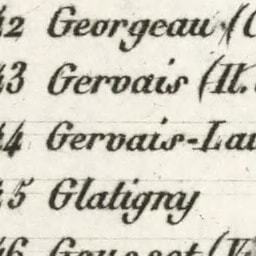 42 Georgeau (C
43 Gervais (H.
44 Gervais-Lau
45 Glatigny
46 Gousset (V